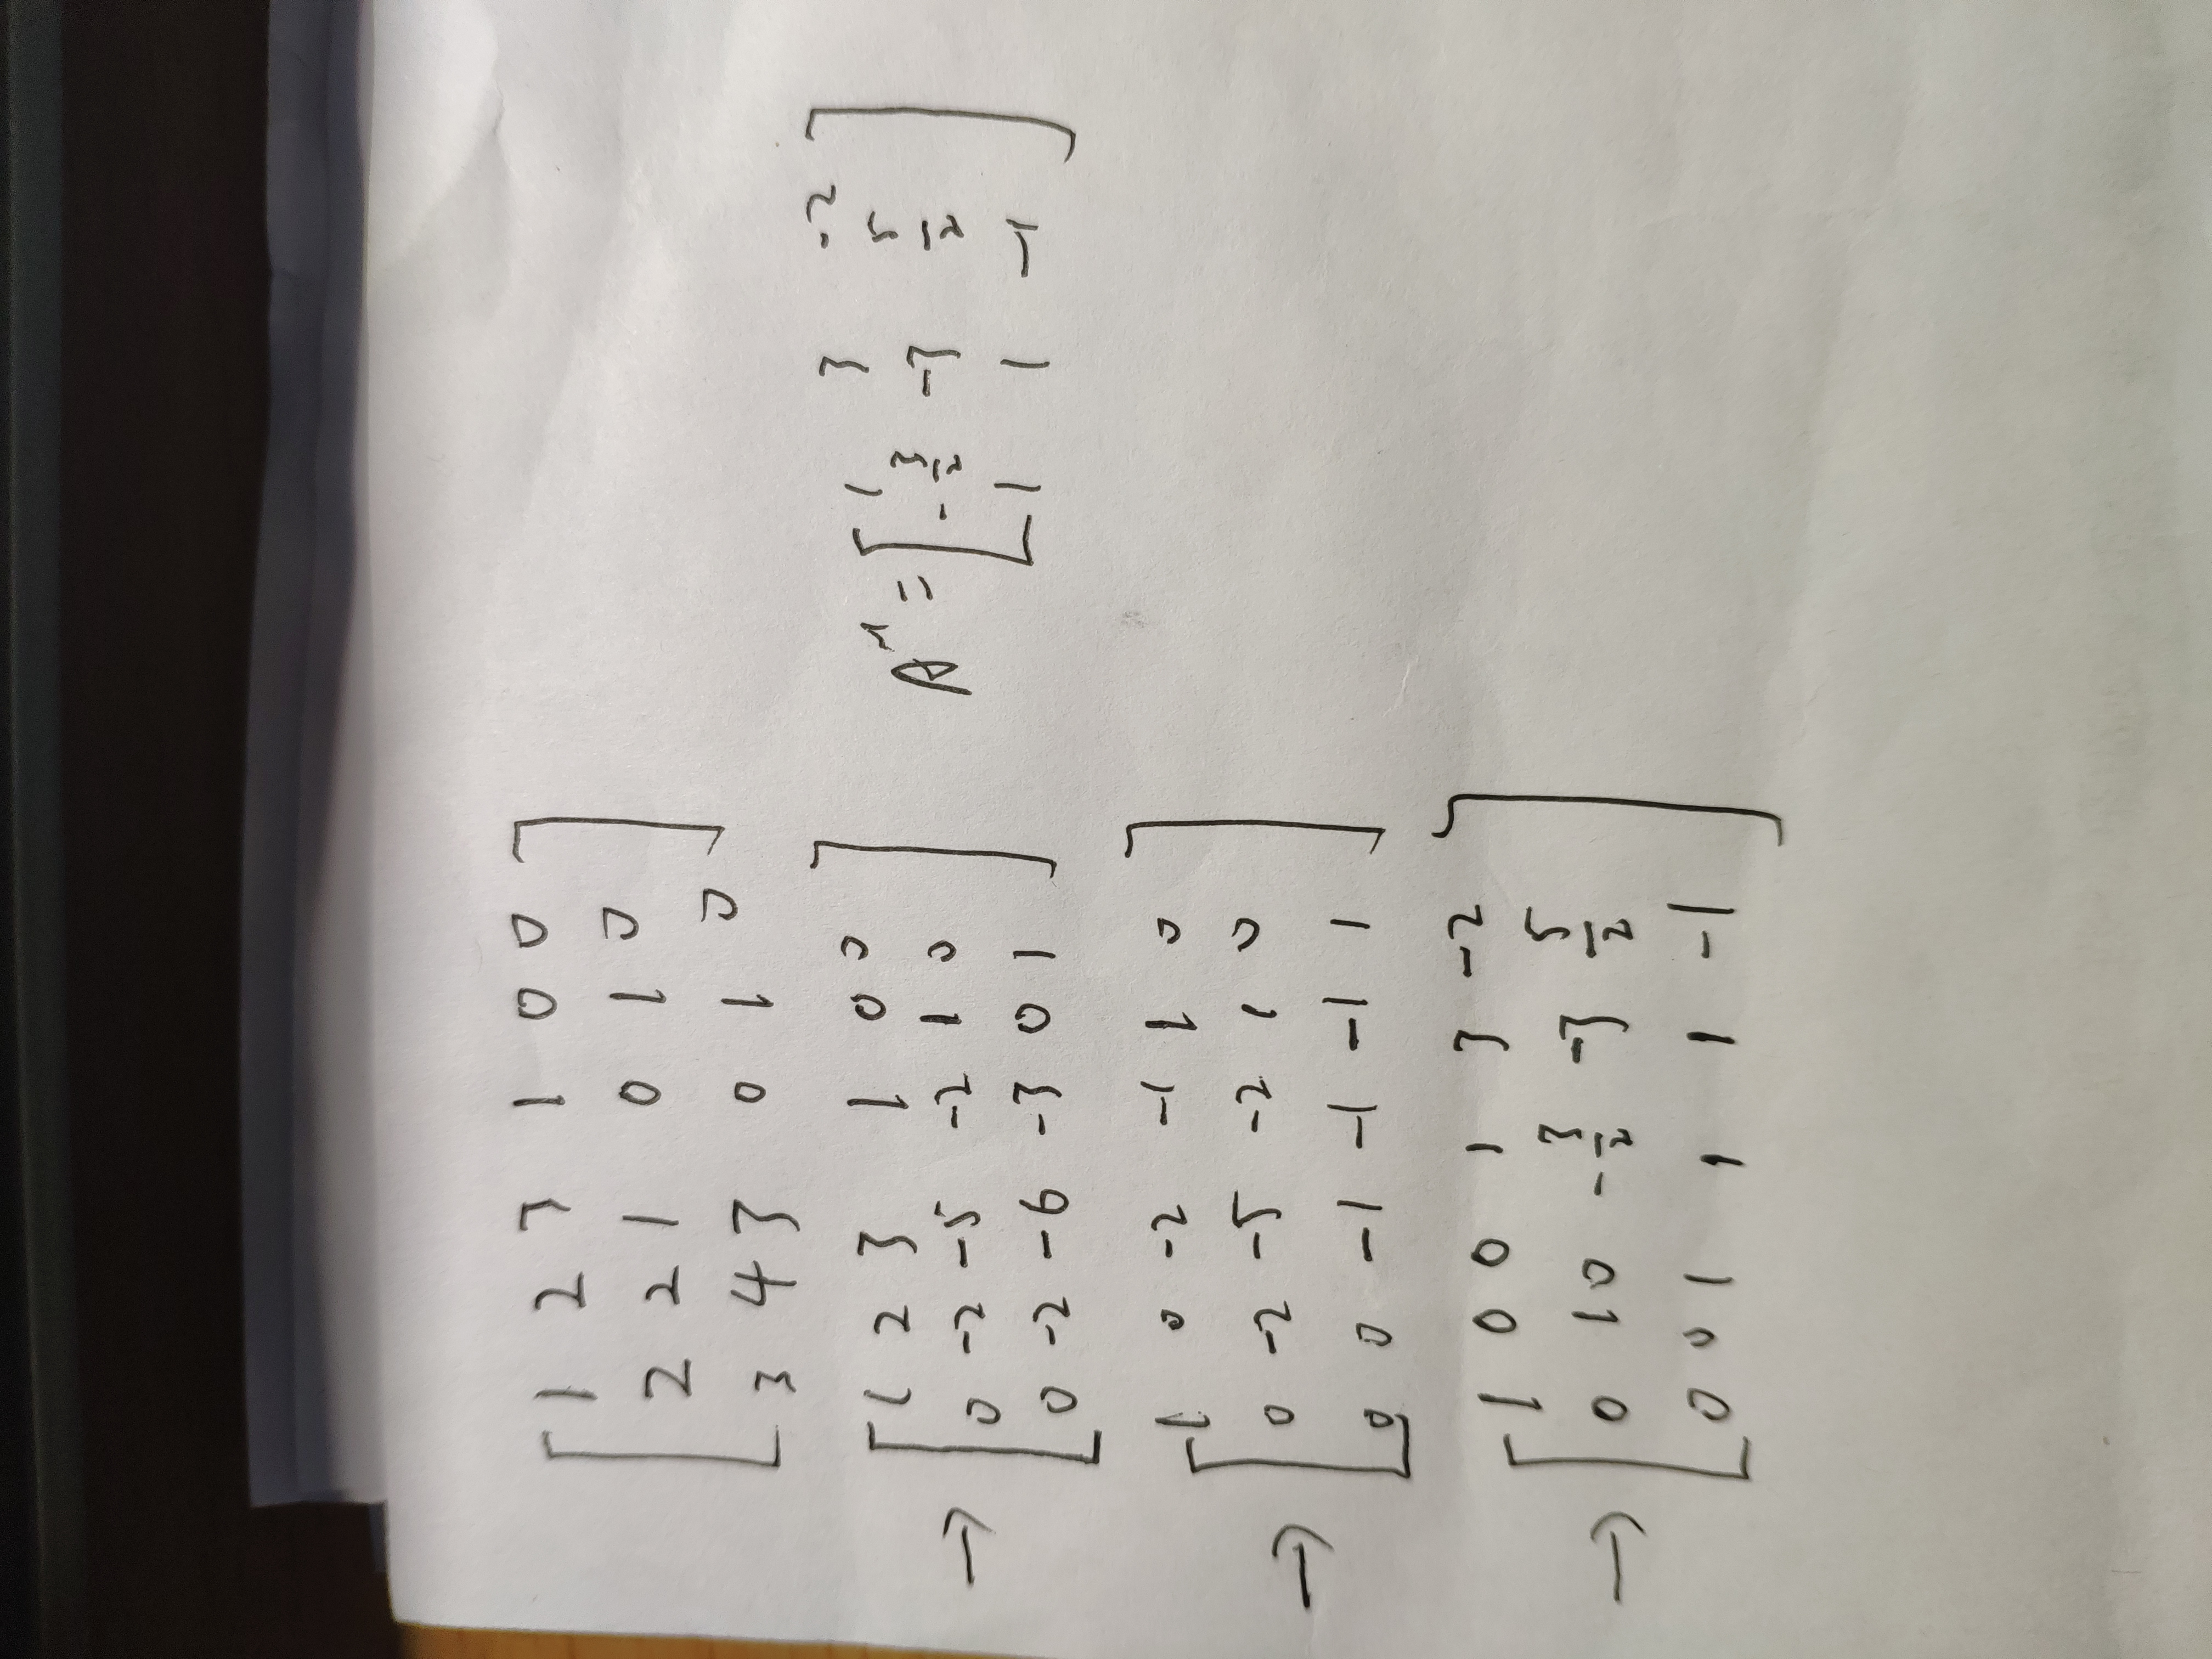 [1 2 3 1 0 0
2 2 1 0 1 0
3 4 3 0 1 0]
→ [1 2 3 1 0 0
0 -2 -5 -2 1 0
0 -2 -6 -3 0 1]
→ [1 0 -2 -1 1 0
0 -2 -5 -2 1 0
0 0 -1 -1 -1 1]
→ [1 0 0 1 3 -2
0 1 0 -3/2 -3 5/2
0 0 1 1 1 -1]
A⁻¹ = [1 3 -2
-3/2 -3 5/2
1 1 -1]